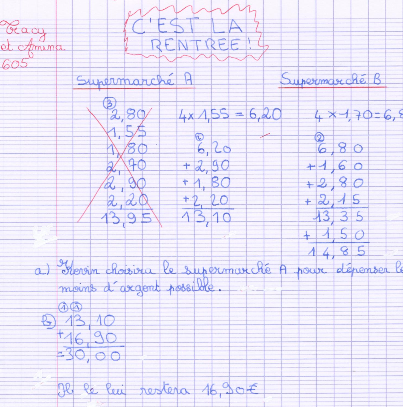 Tracy
et Amina
605
C'EST LA
RENTREE!
Supermarché A
Supermarché B
③
2,80
1,55
1,80
2,70
2,90
2,20
13,95
4x1,55 = 6,20
②
6,20
+ 2,90
+ 1,80
+ 2,20
13,10
4 x 1,70 = 6,8
②
6,80
+ 1,60
+ 2,80
+ 2,15
13,35
+ 1,50
14,85
a) Kévin choisira le supermarché A pour dépenser le
moins d'argent possible.
①①
b) 13,10
+ 16,90
= 30,00
Il le lui restera 16,90€